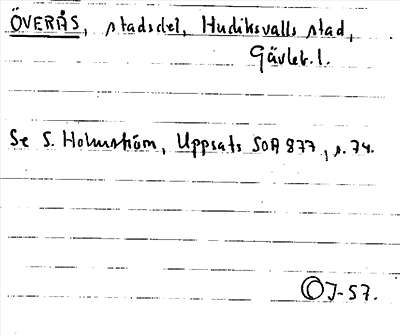 ÖVERÅS, stadsdel, Hudiksvalls stad,
Gävleb. l.
Se S. Holmström, Uppsats SOA 877, s. 74.
OJ-57.